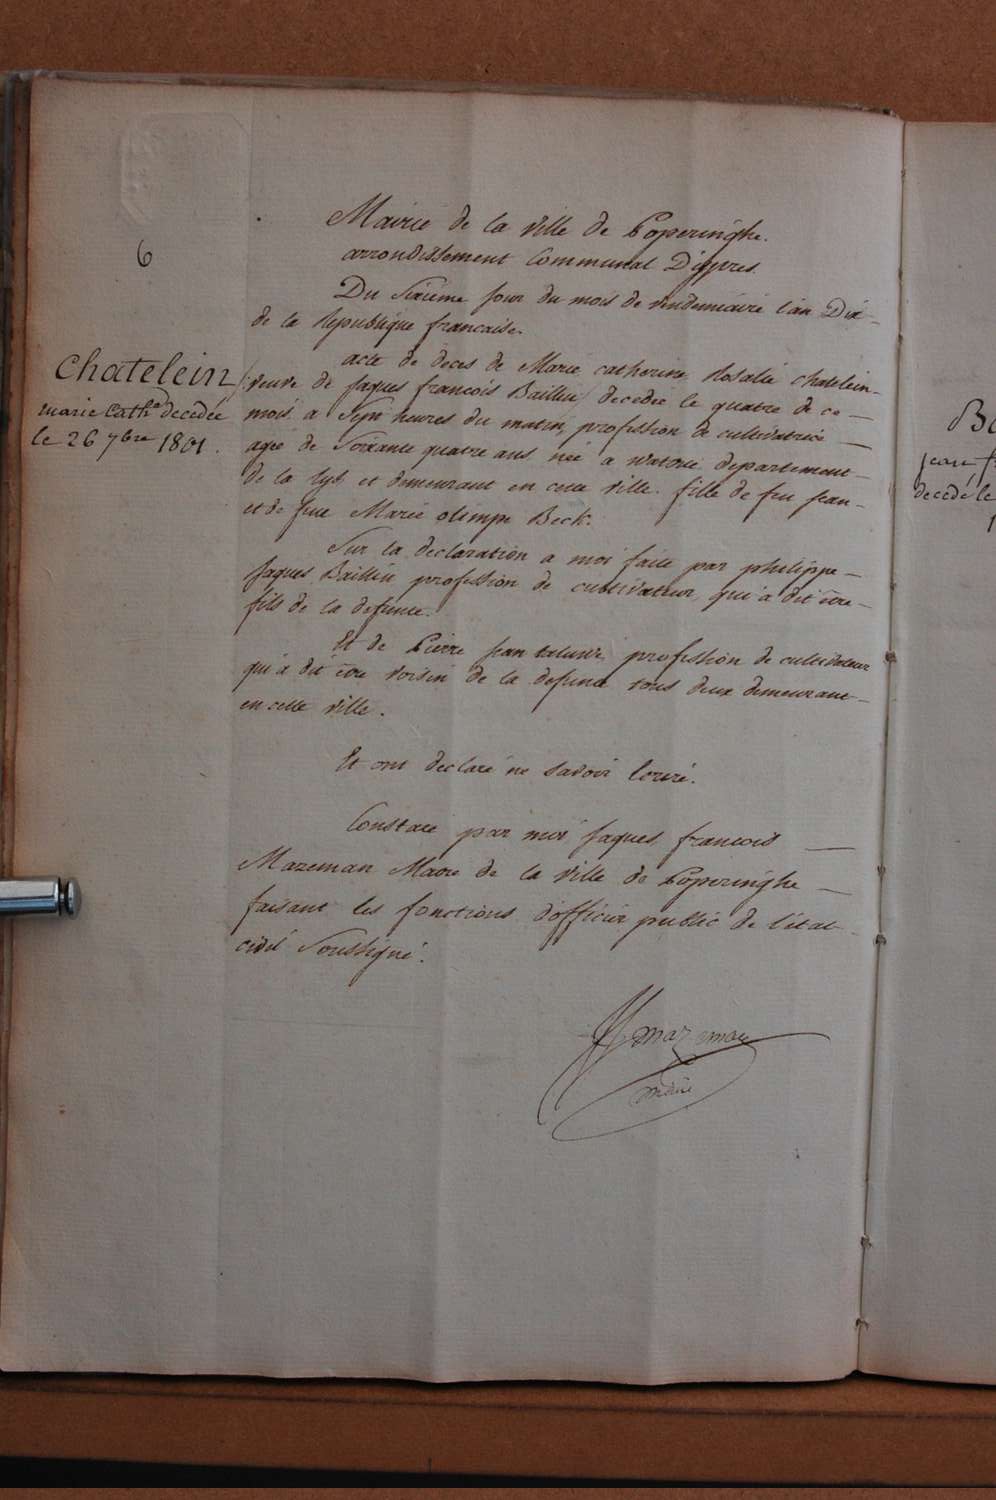 6
Chatelein
marie Cathe decedée
le 26 7bre 1801.
Mairie de la ville de Poperinghe.
arrondissement Communal D'ijpres.
Du Sixième jour du mois de vendemiaire l'an Dix
de la Republique francaise.
acte de deces de Marie catherine Rosalie chatelein
(veuve de jaques francois Baillieu) decedée le quatre de ce
mois a Sept heures du matin, profession de cultivatrice
agée de Soixante quatre ans née a watoue departement
de la Lys et demeurant en cette ville. fille de feu jean
et de feue Marie olimpe Beck.
Sur la declaration a moi faite par philippe
jaques Baillieu profession de cultivateur, qui a dit être
fils de la defunte.
Et de Pierre jean profession de cultivateur
qui a dit être voisin de la defunte tous deux demeurant
en cette ville.
Et ont declaré ne savoir écrire.
Constaté par moi jaques francois
Mazeman Maire de la ville de Poperinghe
faisant les fonctions d'officier public de l'etat
civil Soussigné.
Mazeman
maire
Ba
jean f
decedé le
1